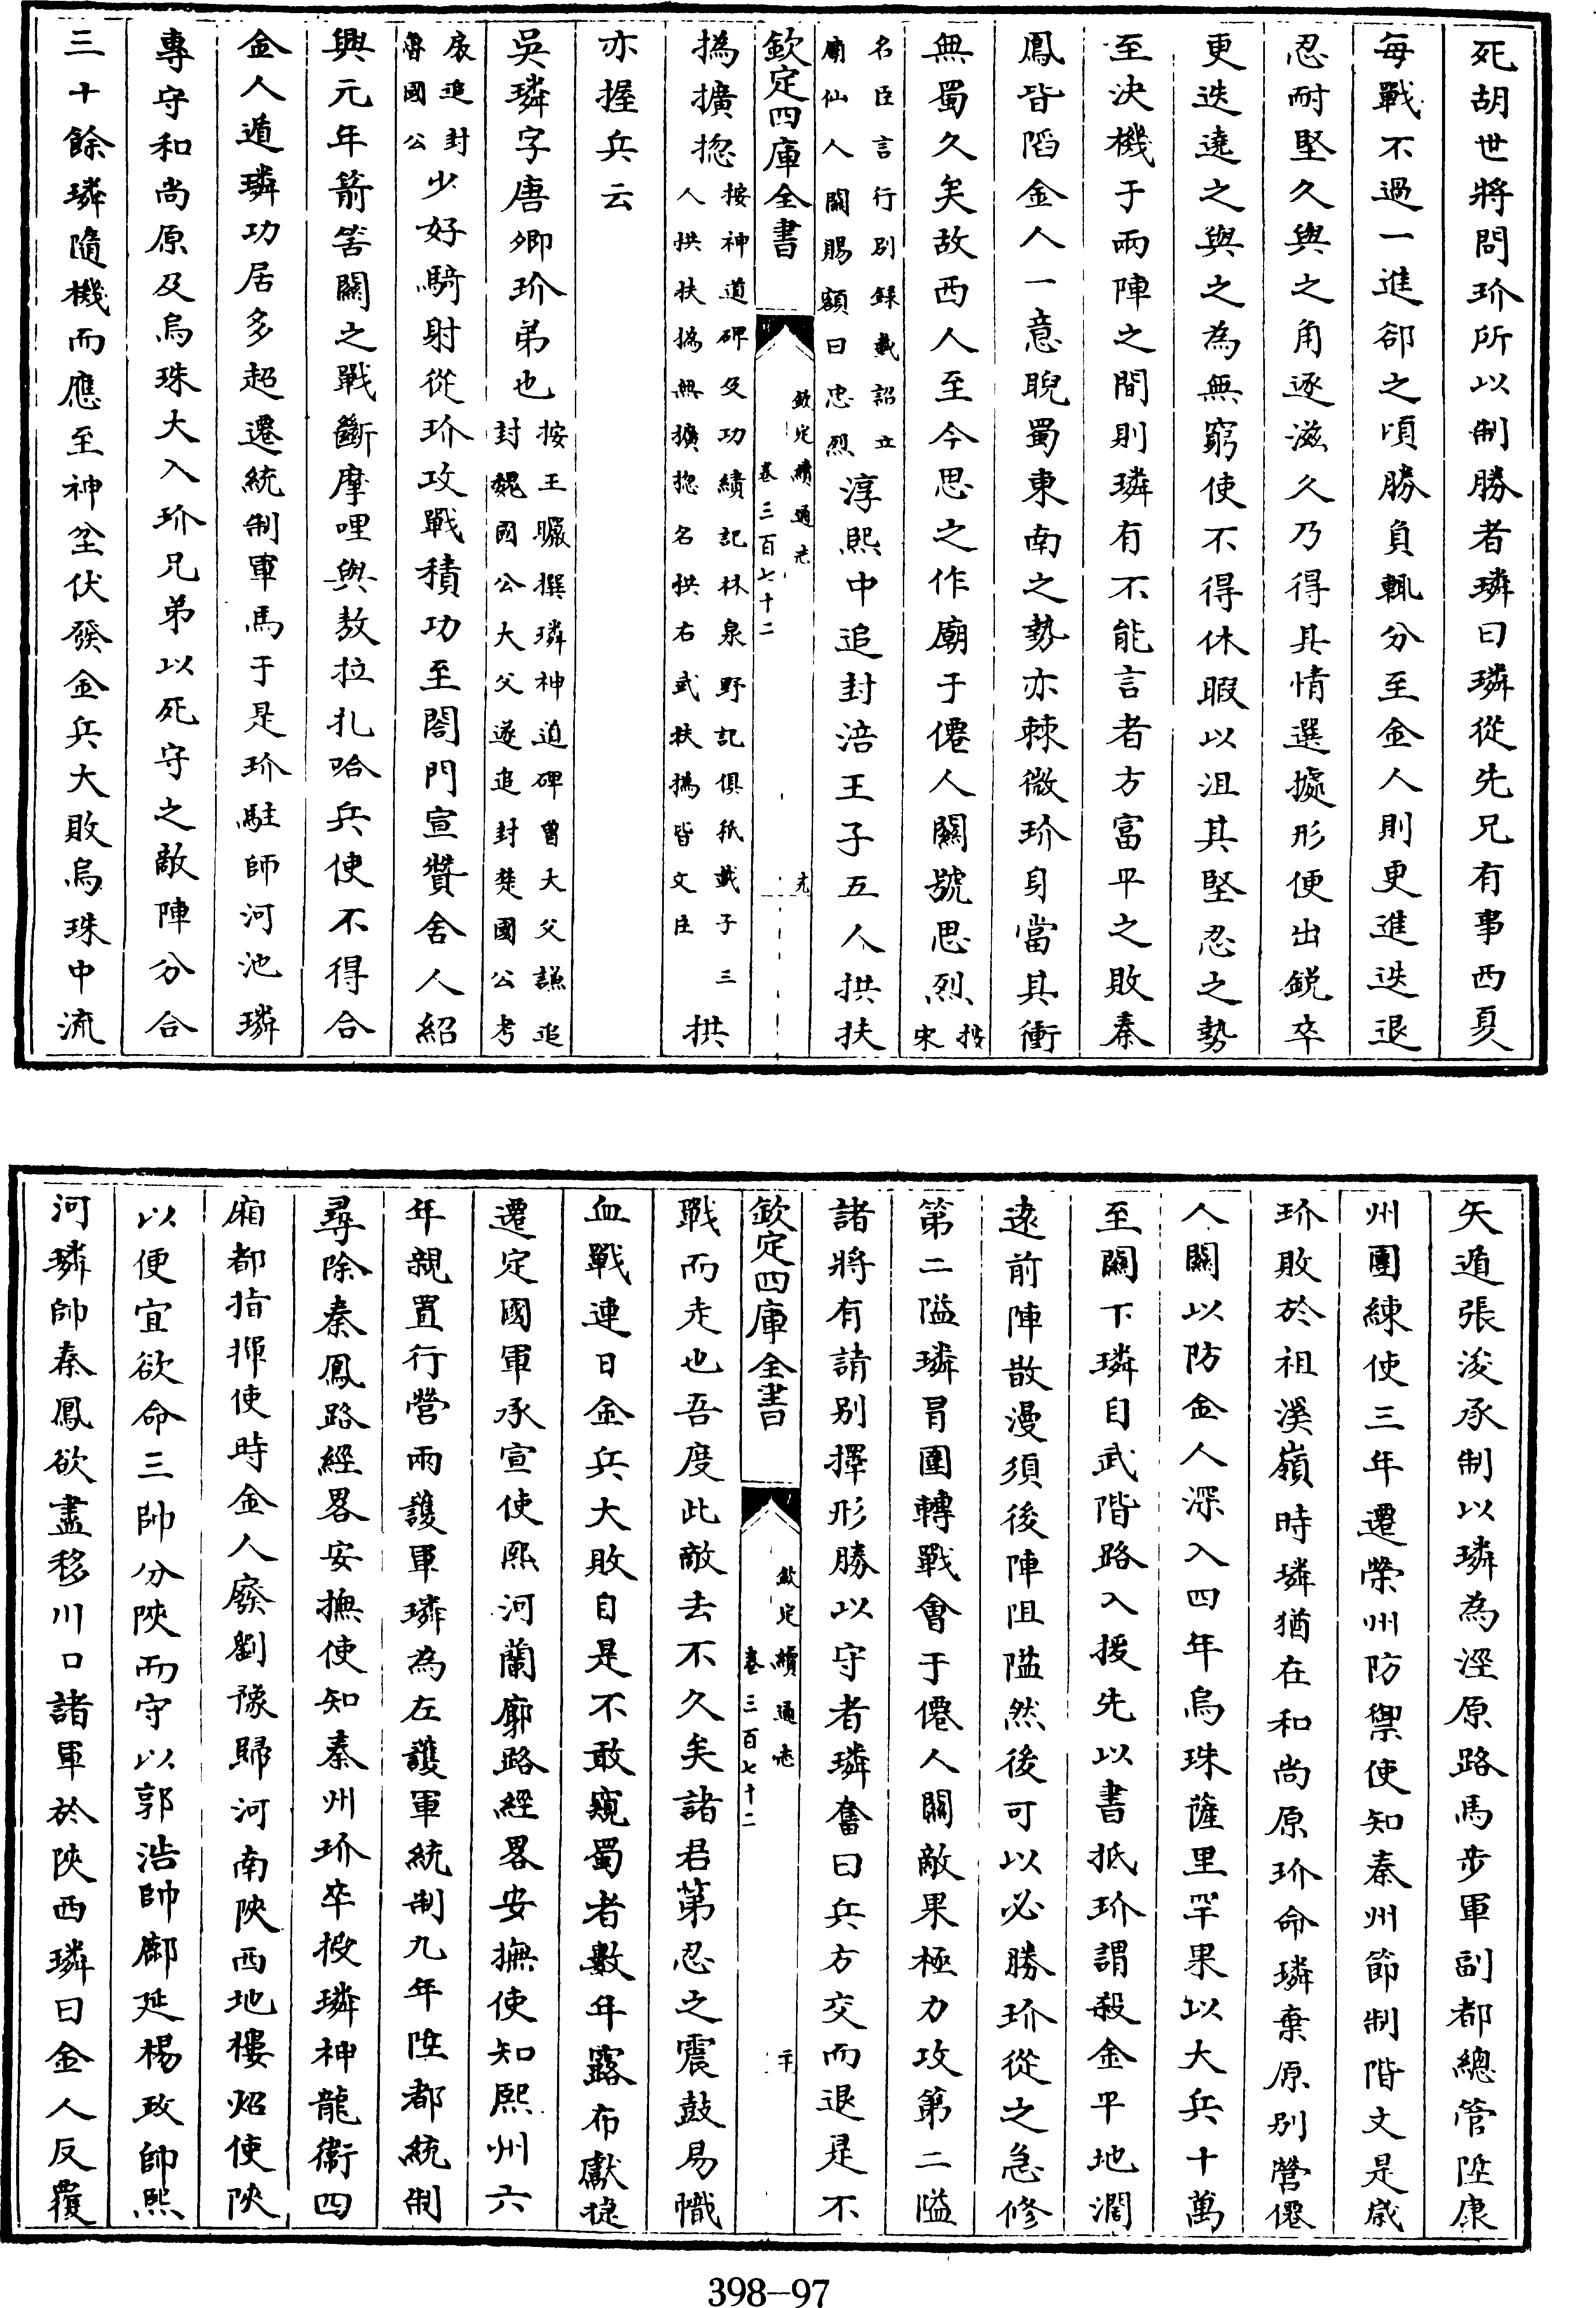 死胡世將問玠所以制勝者璘曰璘從先兄有事西夏
每戰不過一進郤之頃勝負輒分至金人則更進迭退
忍耐堅久與之角逐滋久乃得其情選據形便出銳卒
更迭遶之與之為無窮使不得休暇以沮其堅忍之勢
至決機于兩陣之間則璘有不能言者方富平之敗秦
鳳皆陷金人一意睨蜀東南之勢亦棘微玠身當其衝
無蜀久矣故西人至今思之作廟于僊人關號思烈按宋
名臣言行別錄載詔立廟仙人關賜額曰忠烈淳熙中追封涪王子五人拱扶
欽定四庫全書
欽定續通志
卷三百七十二
九
撝擴揔按神道碑及功績記林泉野記俱秖載子三人拱扶撝無擴揔名拱右武扶撝皆文臣拱
亦握兵云
吳璘字唐卿玠弟也按王曮撰璘神道碑曾大父謙追封魏國公大父遂追封楚國公考
扆追封魯國公少好騎射從玠攻戰積功至閤門宣贊舍人紹
興元年箭筈關之戰斷摩哩與敖拉扎哈兵使不得合
金人遁璘功居多超遷統制軍馬于是玠駐師河池璘
專守和尚原及烏珠大入玠兄弟以死守之敵陣分合
三十餘璘隨機而應至神坌伏發金兵大敗烏珠中流
矢遁張浚承制以璘為涇原路馬步軍副都總管陞康
州團練使三年遷榮州防禦使知秦州節制階文是歲
玠敗於祖溪嶺時璘猶在和尚原玠命璘棄原別營僊
人關以防金人深入四年烏珠薩里罕果以大兵十萬
至關下璘自武階路入援先以書抵玠謂殺金平地濶
遠前陣散漫須後陣阻隘然後可以必勝玠從之急修
第二隘璘冒圍轉戰會于僊人關敵果極力攻第二隘
諸將有請別擇形勝以守者璘奮曰兵方交而退是不
欽定四庫全書
欽定續通志
卷三百七十二
二十
戰而走也吾度此敵去不久矣諸君第忍之震鼓易幟
血戰連日金兵大敗自是不敢窺蜀者數年露布獻捷
遷定國軍承宣使熙河蘭廓路經畧安撫使知熙州六
年親置行營兩護軍璘為左護軍統制九年陞都統制
尋除秦鳳路經畧安撫使知秦州玠卒授璘神龍衞四
廂都指揮使時金人廢劉豫歸河南陜西地樓炤使陜
以便宜欲命三帥分陜而守以郭浩帥鄜延楊政帥熙
河璘帥秦鳳欲盡移川口諸軍於陜西璘曰金人反覆
398-97